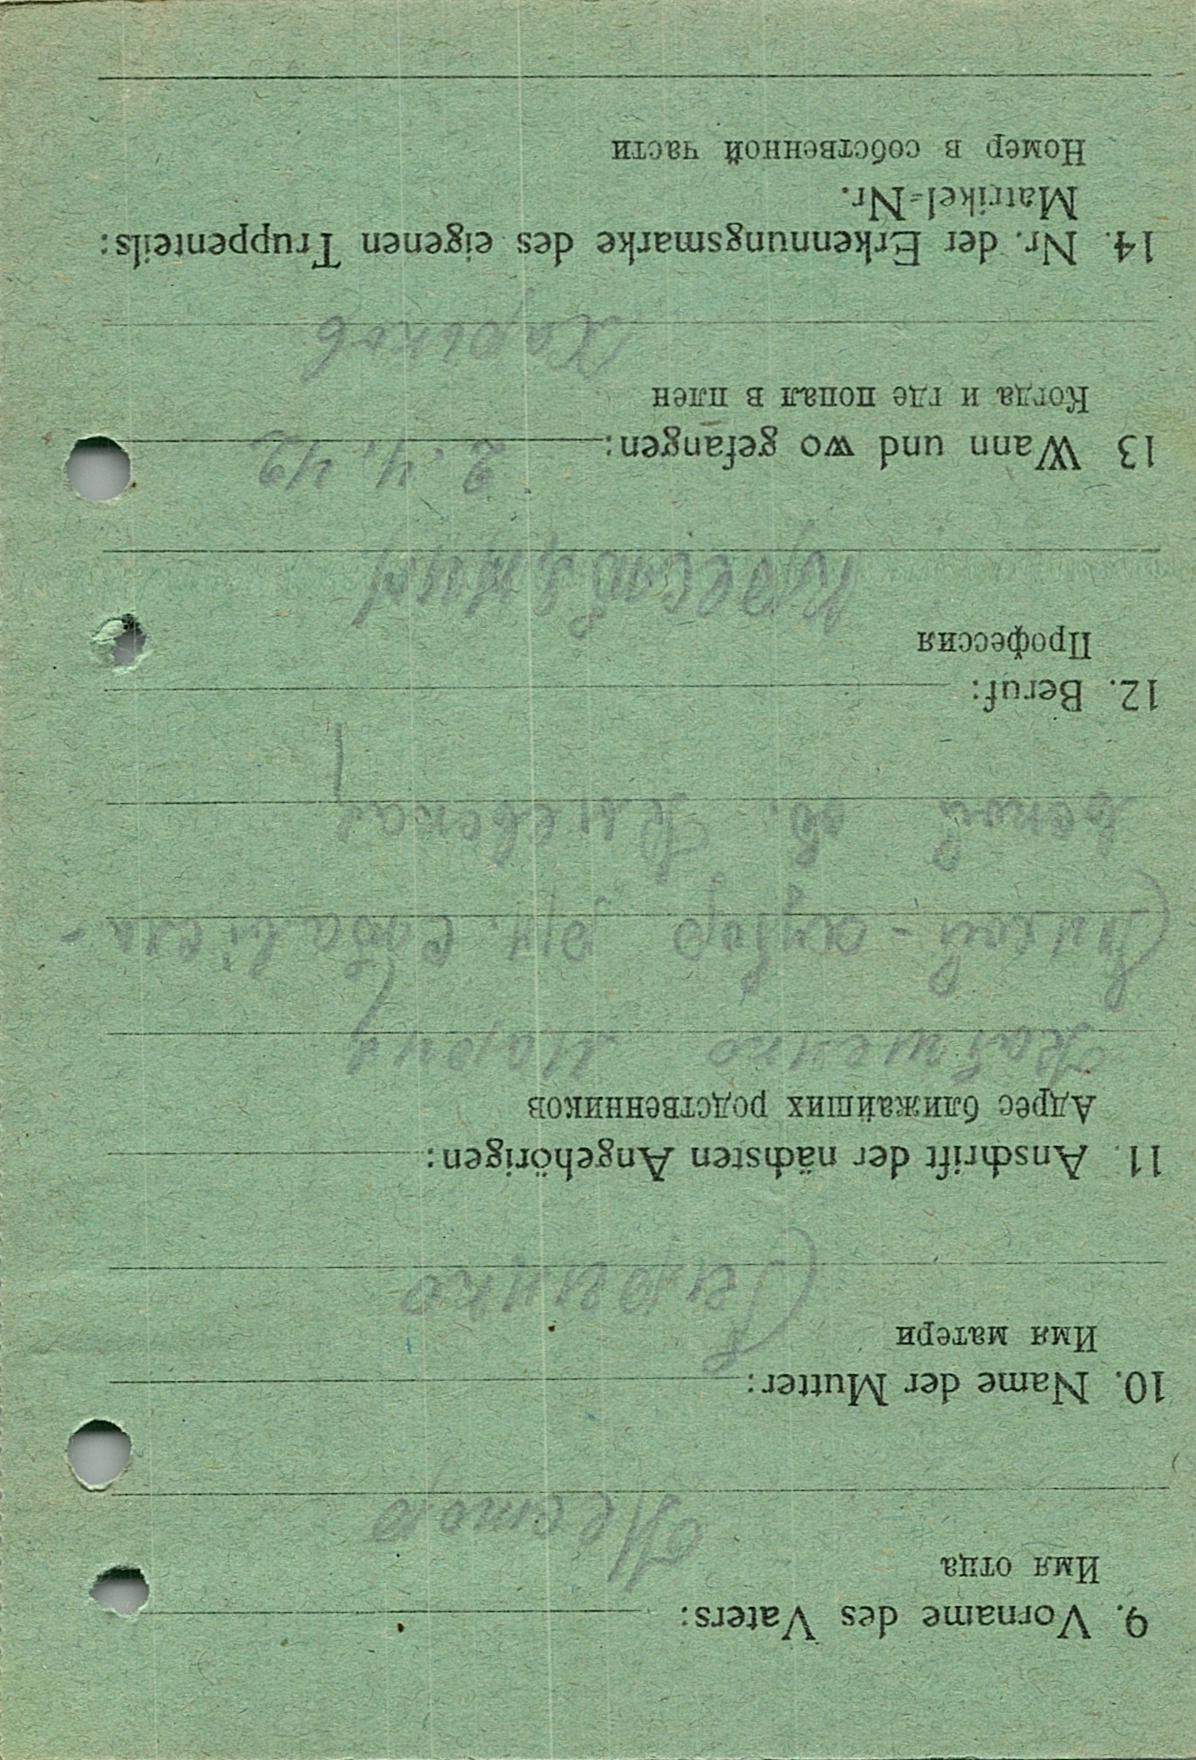 9. Vorname des Vaters:
Имя отца
Нестор
10. Name der Mutter:
Имя матери
11. Anschrift der nächsten Angehörigen:
Адрес ближайших родственников
Мария
хутор
об. Киевская
12. Beruf:
Профессия
13 Wann und wo gefangen: 2.4.42
Когда и где попал в плен
Харьков
14. Nr. der Erkennungsmarke des eigenen Truppenteils:
Matrikel-Nr.
Номер в собственной части